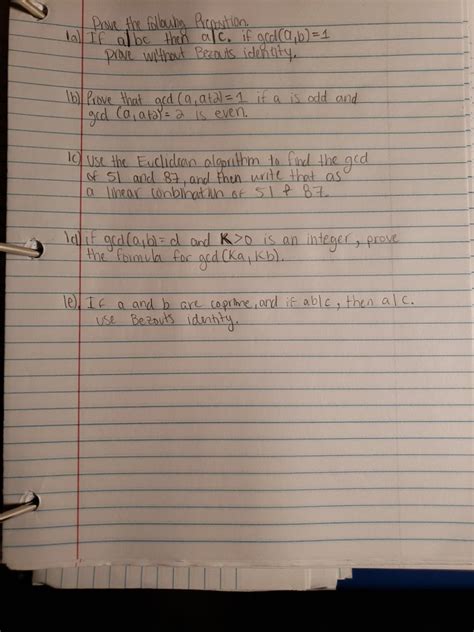 Prove the following Proposition
1a) If a|bc then a|c. if gcd(a,b)=1
prove without Bezouts identity.
1b) Prove that gcd (a,a+2)=1 if a is odd and
gcd (a,a+2)=2 is even.
1c) Use the Euclidean algorithm to find the gcd
of 51 and 87, and then write that as
a linear combination of 51 & 87.
1d) if gcd(a,b)=d and K>0 is an integer, prove
the formula for gcd(Ka,Kb).
1e) If a and b are coprime, and if ab|c, then a|c.
use Bezouts identity.